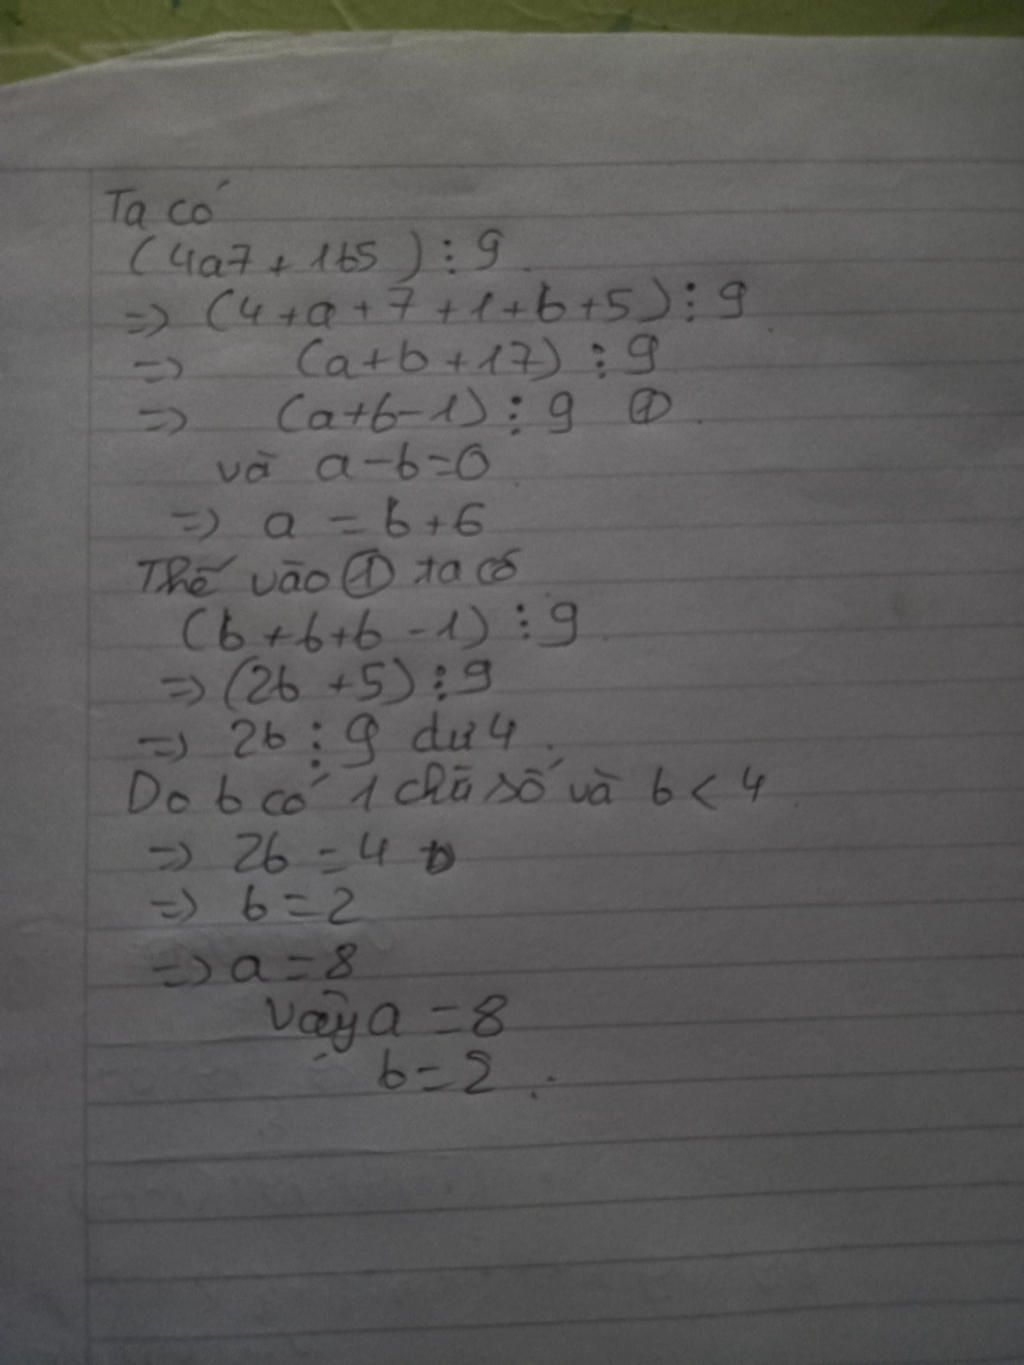 Ta có
(4a7 + 1b5) ⋮ 9
=> (4 + a + 7 + 1 + b + 5) ⋮ 9
=> (a + b + 17) ⋮ 9
=> (a + b - 1) ⋮ 9 ①
và a - b = 6
=> a = b + 6
Thế vào ① ta có
(b + 6 + b - 1) ⋮ 9
=> (2b + 5) ⋮ 9
=> 2b ⋮ 9 dư 4.
Do b có 1 chữ số và b < 4
=> 2b = 4
=> b = 2
=> a = 8
Vậy a = 8
b = 2.